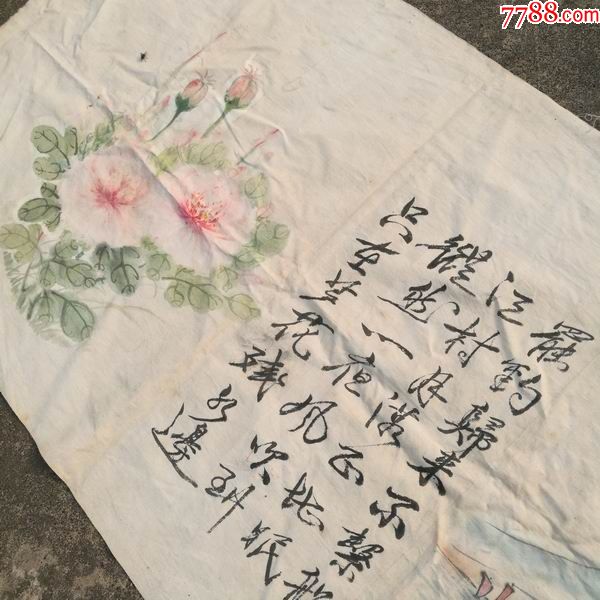 7788.com
罷釣歸來不繫船
江村月落正堪眠
縱然一夜風吹到
只在芦花淺水邊